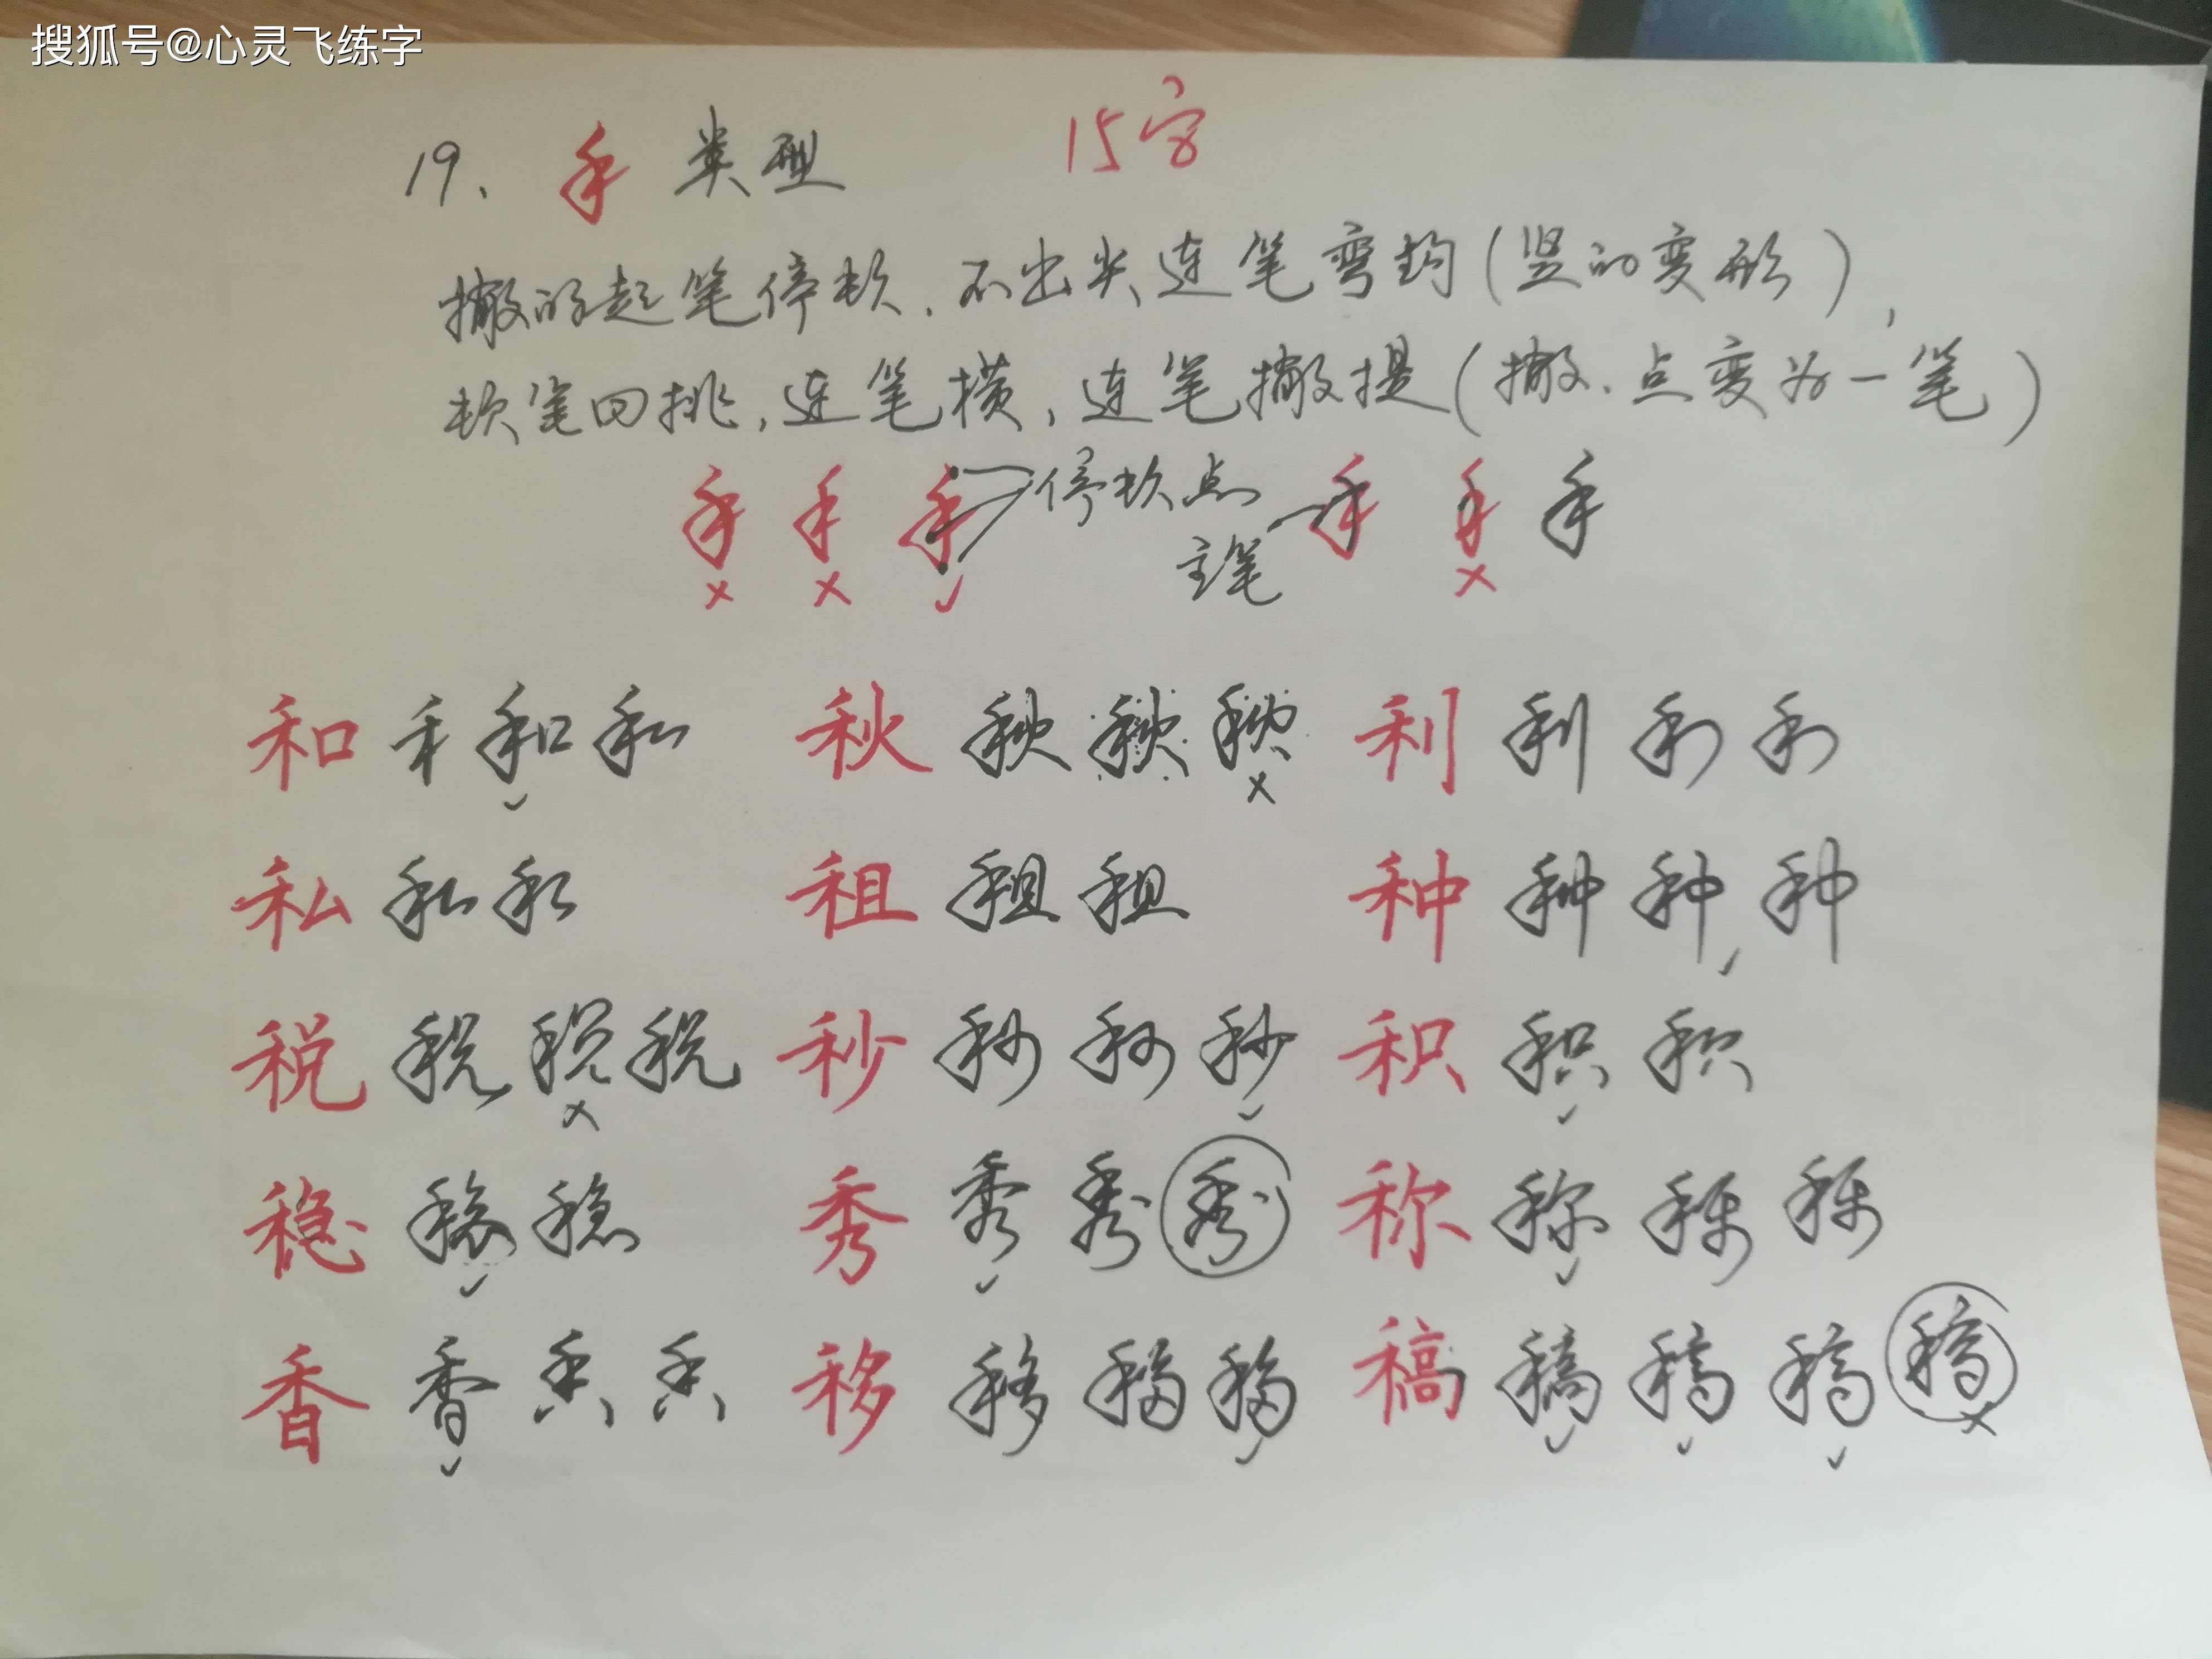 搜狐号@心灵飞练字
19、禾类型 15字
撇的起笔停顿.不出尖连笔弯钩(竖的变形),
顿笔回挑,连笔横,连笔撇提(撇、点变为一笔)
禾 禾 禾 停顿点 禾 禾 禾
× × ✓ 主笔 ×
和 禾 和 和 秋 秋 秋 秋 利 利 利 利
✓ ×
私 私 私 租 租 租 种 种 种 种
✓
税 税 税 税 秒 秒 秒 秒 积 积 积
× ✓ ✓
稳 稳 稳 秀 秀 秀 秀 称 称 称 称
✓ ✓ ✓
香 香 香 香 移 移 移 移 稿 稿 稿 稿 稿
✓ ✓ ✓ ✓ ✓ ×